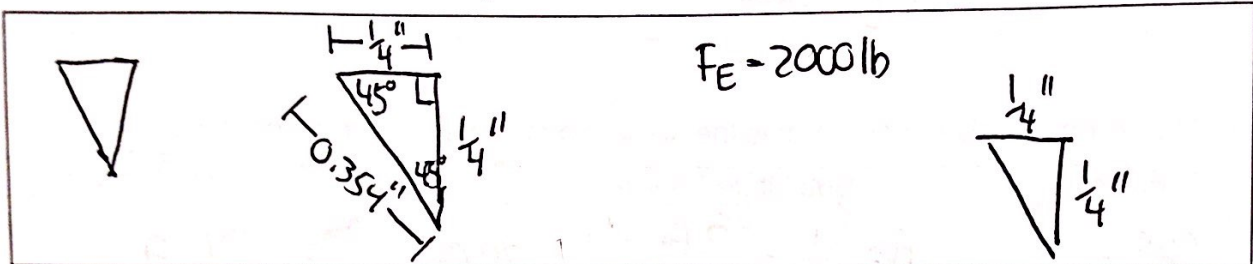 1/4"
45°
1/4"
45°
0.354"
F_E = 2000 lb
1/4"
1/4"